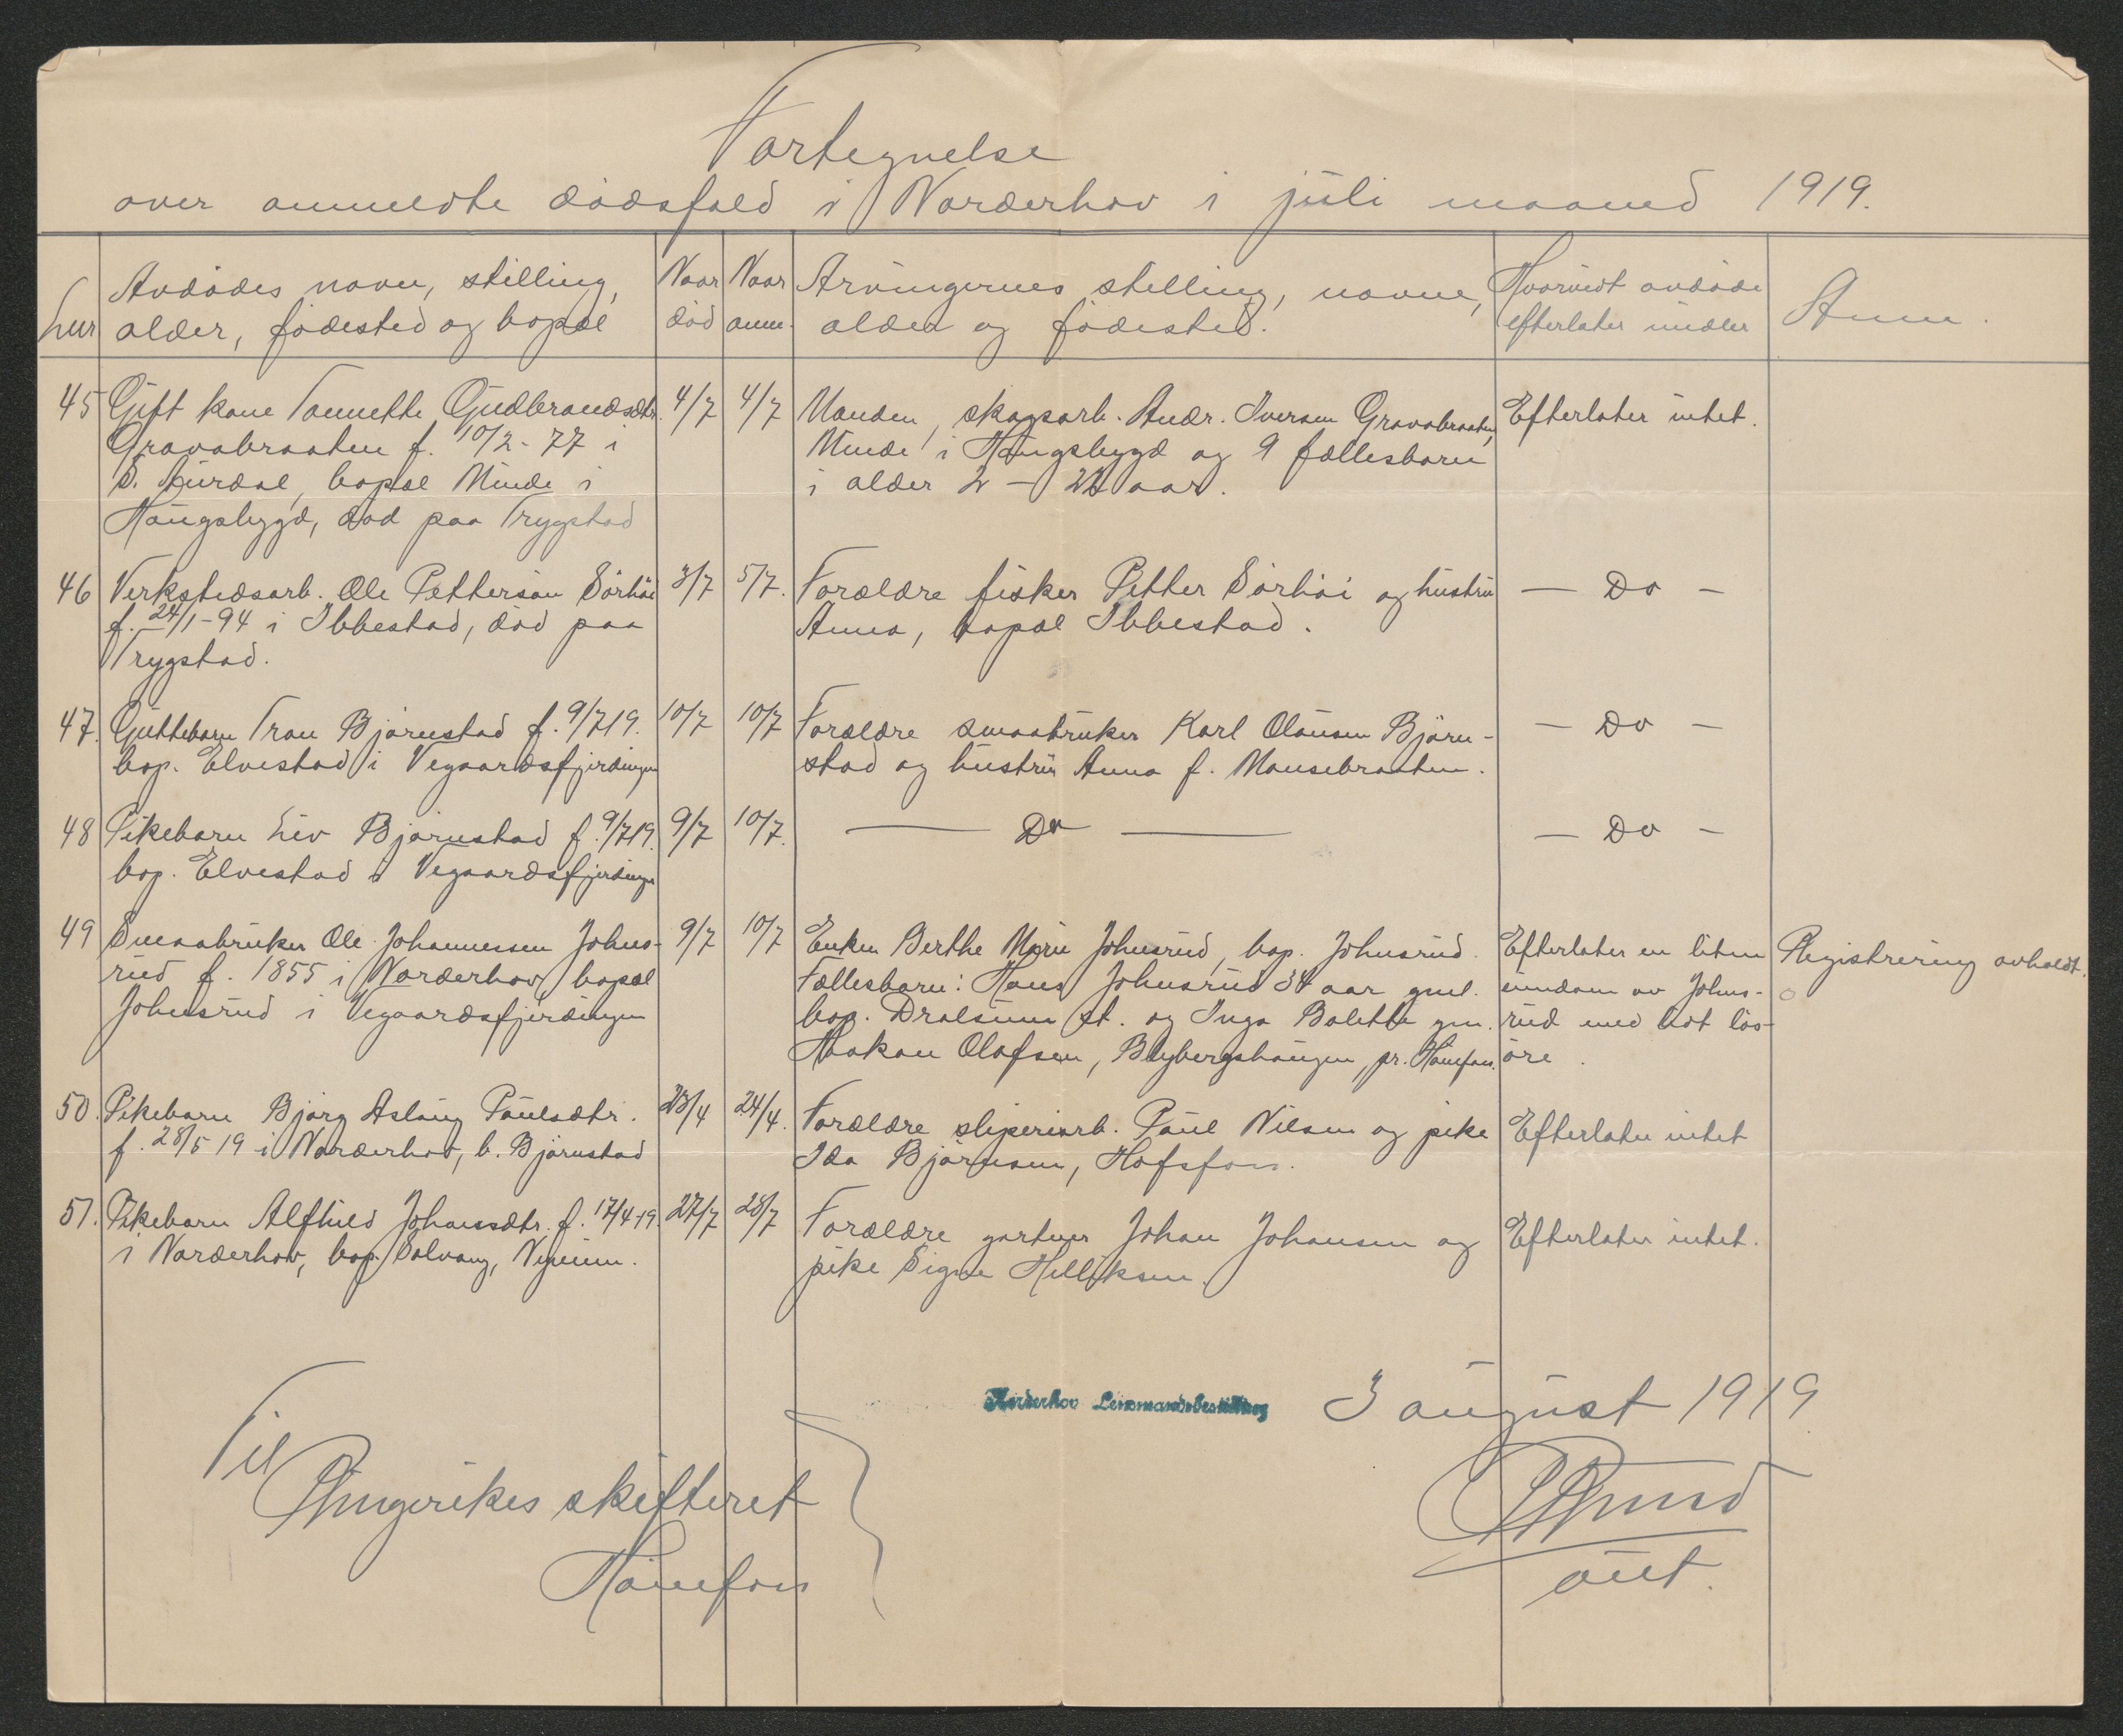 Fortegnelse
over anmeldte dödsfald i Norderhov i juli maaned 1919.
Lnr
Avdödes navn, stilling,
alder, födested og bopæl
Naar
död
Naar
anm.
Arvingernes stilling, navne,
alder og födested.
Hvorvidt avdöde
efterlater midler
Anm.
45 Gift kone Tonnette Gudbrandsdtr.
Gravabraaten f. 10/2-77 i
S. Aurdal, bopæl Minde i
Haugsbygd, död paa Trygstad
4/7 4/7
Manden, skogsarb. Andr. Iversen Gravabraaten,
Minde i Haugsbygd og 9 fællesbarn
i alder 2 - 22 aar.
Efterlater intet.
46 Verkstedsarb. Ole Petterson Sörhöi
f. 24/1-94 i Ibbestad, död paa
Trygstad.
3/7 5/7.
Forældre fisker Petter Sörhöi og hustru
Anna, bopæl Ibbestad.
- Do -
47. Guttebarn Tron Björnstad f. 9/7 19.
bop. Elvestad i Vegaardsfjerdingen
10/7 10/7
Forældre smaabruker Karl Olausen Björn-
stad og hustru Anna f. Mausebraaten.
- Do -
48 Pikebarn Liv Björnstad f. 9/7 19.
bop. Elvestad i Vegaardsfjerdingen
9/7 10/7.
- Do -
- Do -
49 Smaabruker Ole Johannessen Johns-
rud f. 1855 i Norderhov, bopæl
Johnsrud i Vegaardsfjerdingen
9/7 10/7
Enken Berthe Marie Johnsrud, bop. Johnsrud.
Fællesbarn: Hans Johnsrud 34 aar gml.
bop. Dralsum st. og Inga Bolette gm.
Haakon Olafsen, Blybergshaugen pr. Hönefoss.
Efterlater en liten
eiendom av Johns-
rud med litt lös-
öre.
Registrering avholdt.
50. Pikebarn Björg Aslaug Paulsdtr.
f. 28/5 19 i Norderhov, b. Björnstad
23/4 24/4.
Forældre sliperiarb. Paul Nilsen og pike
Ida Björnsen, Hofsfoss.
Efterlater intet
51. Pikebarn Alfhild Johansdtr. f. 17/4 19.
i Norderhov, bop. Solvang,
27/7 28/7
Forældre gartner Johan Johansen og
pike Signe Helliksen.
Efterlater intet.
Norderhov Lensmandsbestilling 3 august 1919
Til
Ringerikes skifteret
Hönefoss
aut.